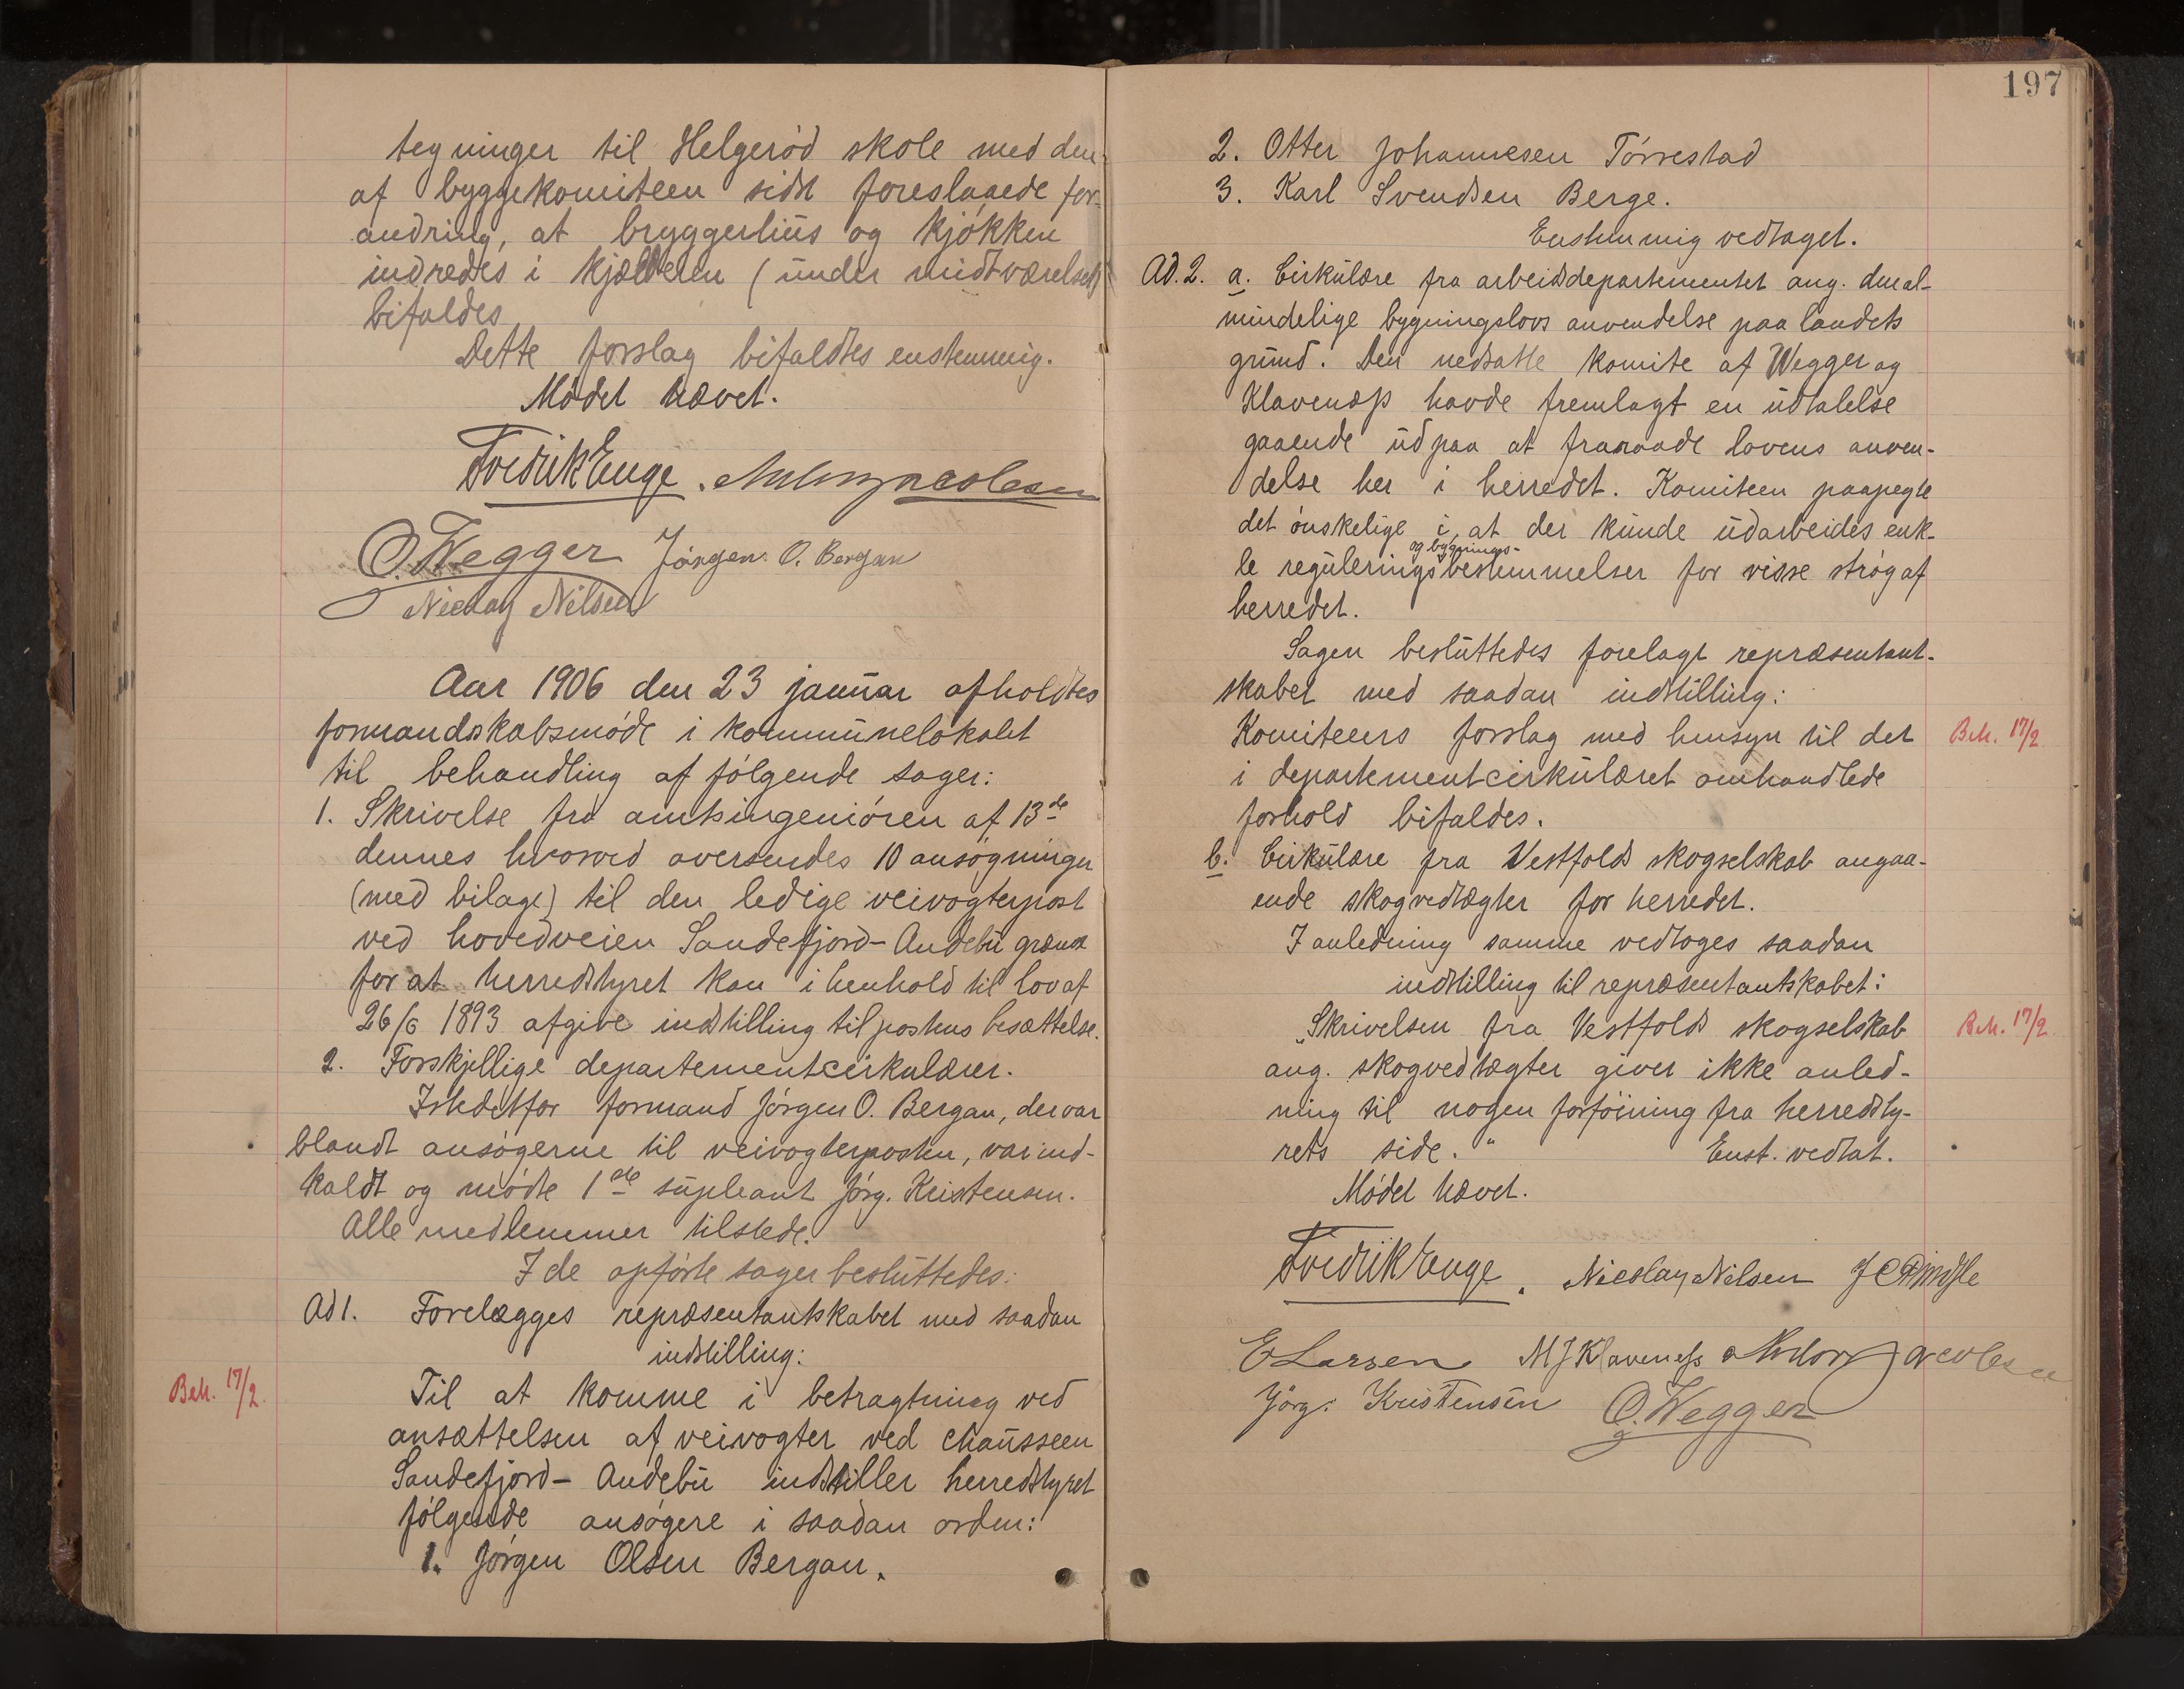 tegninger til Helgerød skole med den
af byggekomiteen sidst foreslaaede for-
andring, at bryggerhus og kjøkken
indredes i kjælderen (under midtværelset)
bifaldes
Dette forslag bifaldtes enstemmig.
Mødet hævet.
Fredrik Enge. Anton Jacobsen
O. Wegger Jørgen O. Bergan
Nicolay Nilsen
Aar 1906 den 23 januar afholdtes
formandskabsmøde i kommunelokalet
til behandling af følgende sager:
1. Skrivelse fra amtsingeniøren af 13de
dennes hvorved oversendes 10 ansøgninger
(med bilage) til den ledige veivogterpost
ved hovedveien Sandefjord-Andebu grænse
for at herredstyret kan i henhold til lov af
26/6 1893 afgive indstilling til postens besættelse.
2. Forskjellige departementcirkulærer.
Istedetfor formand Jørgen O. Bergan, der var
blandt ansøgerne til veivogterposten, var ind-
kaldt og mødte 1ste supleant Jørg. Kristensen.
Alle medlemmer tilstede.
I de opførte sager besluttedes:
Ad 1. Forelægges repræsentantskabet med saadan
indstilling:
Beh. 17/2. Til at komme i betragtning ved
ansættelsen af veivogter ved chausseen
Sandefjord- Andebu indstiller herredstyret
følgende ansøgere i saadan orden:
1. Jørgen Olsen Bergan.
197
2. Otter Johannesen Tørrestad
3. Karl Svendsen Berge.
Enstemmig vedtaget.
Ad. 2. a. Cirkulære fra arbeidsdepartementet ang. den al-
mindelige bygningslovs anvendelse paa landets
grund. Den nedsatte komite af Wegger og
Klavenæss havde fremlagt en udtalelse
gaaende ud paa at fraraade lovens anven-
delse her i herredet. Komiteen paapegte
det ønskelige i, at der kunde udarbeides enk-
og bygnings-
le reguleringsbestemmelser for visse strøg af
herredet.
Sagen besluttedes forelagt repræsentant-
skabet med saadan indstilling:
Komiteens forslag med hensyn til det Beh. 17/2
i departementcirkulæret omhandlede
forhold bifaldes.
b. Cirkulære fra Vestfolds skogselskab angaa-
ende skogvedtægter for herredet.
I anledning samme vedtoges saadan
indstilling til repræsentantskabet:
„Skrivelsen fra Vestfolds skogselskab Beh. 17/2
ang. skogvedtægter giver ikke anled-
ning til nogen forføining fra herredsty-
rets side.“ Enst. vedtat.
Mødet hævet.
Fredrik Enge. Nicolay Nilsen
E Larsen M J Klaveness Anton Jacobsen
Jørg. Kristensen O. Wegger